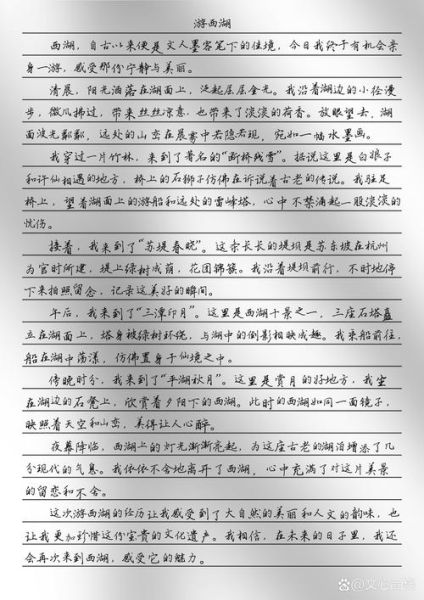 游西湖
西湖，自古以来便是文人墨客笔下的佳境，今日我终于有机会亲
身一游，感受那份宁静与美丽。
清晨，阳光洒落在湖面上，泛起层层金光。我沿着湖边的小径漫
步，微风拂过，带来丝丝凉意，也带来了淡淡的荷香。放眼望去，湖
面波光粼粼，远处的山峦在晨雾中若隐若现，宛如一幅水墨画。
我穿过一片竹林，来到了著名的“断桥残雪”。据说这里是白娘子
和许仙相遇的地方，桥上的石狮子仿佛在诉说着古老的传说。我驻足
桥上，望着湖面上的游船和远处的雷峰塔，心中不禁涌起一股淡淡的
忧伤。
接着，我来到了“苏堤春晓”。这条长长的堤坝是苏东坡在杭州
为官时所建，堤上绿树成荫，花团锦簇。我沿着堤坝前行，不时地停
下来拍照留念，记录这美好的瞬间。
午后，我来到了“三潭印月”。这里是西湖十景之一，三座石塔矗
立在湖面上，塔身被绿树环绕，与湖中的倒影相映成趣。我乘船前往，
船在湖中荡漾，仿佛置身于仙境之中。
傍晚时分，我来到了“平湖秋月”。这里是赏月的好地方，我坐
在湖边的石凳上，欣赏着夕阳下的西湖。此时的西湖如同一面镜子，
映照着天空和山峦，美得让人心醉。
夜幕降临，西湖上的灯光渐渐亮起，为这座古老的湖泊增添了几
分现代的气息。我依依不舍地离开了西湖，心中充满了对这片美景
的留恋和不舍。
这次游西湖的经历让我感受到了大自然的美丽和人文的韵味，也
让我更加珍惜这份宝贵的文化遗产。我相信，在未来的日子里，我还
会再次来到西湖，感受它的魅力。